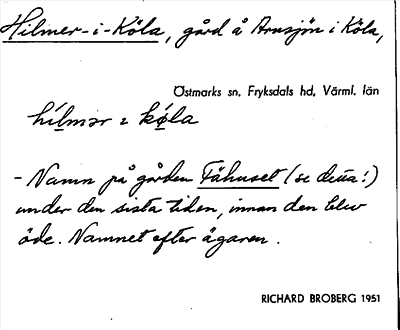 Hilmer-i-Köla, gård å Arnsjön i Köla,
Östmarks sn, Fryksdals hd, Värml. län
hílmər ɩ kø̀la
- Namn på gården Fähuset (se detta!)
under den sista tiden, innan den blev
öde. Namnet efter ägaren.
RICHARD BROBERG 1951